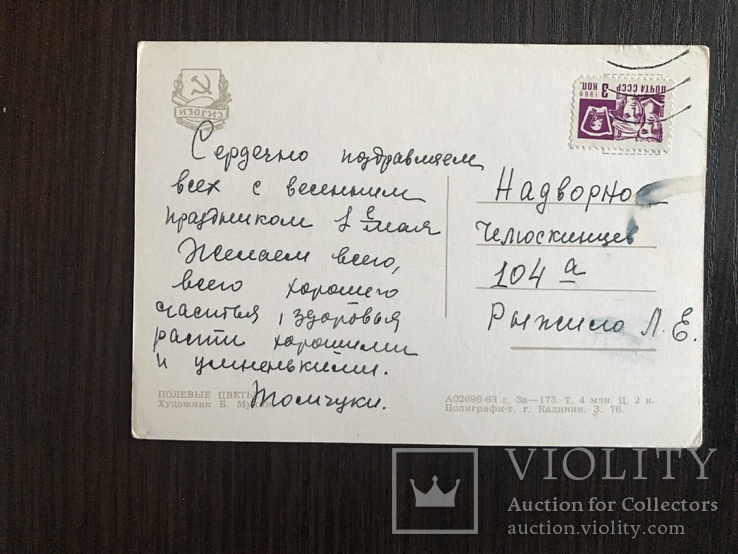 ИЗОГИЗ
ПОЧТА СССР
1966
3 КОП.
Сердечно поздравляем
всех с весенним
праздником 1 е мая
Желаем всего,
всего хорошего
счастья, здоровья
расти хорошими
и умненькими.
Томчуки.
Надворно
Челюскинцев
104 а
Рыжило Л. Е.
ПОЛЕВЫЕ ЦВЕТЫ
Художник Б.
А02696-63 г. За—175. Т. 4 млн. Ц. 2 к.
Полиграфк-т, г. Калинин. З. 76.
VIOLITY
Auction for Collectors
auction.violity.com